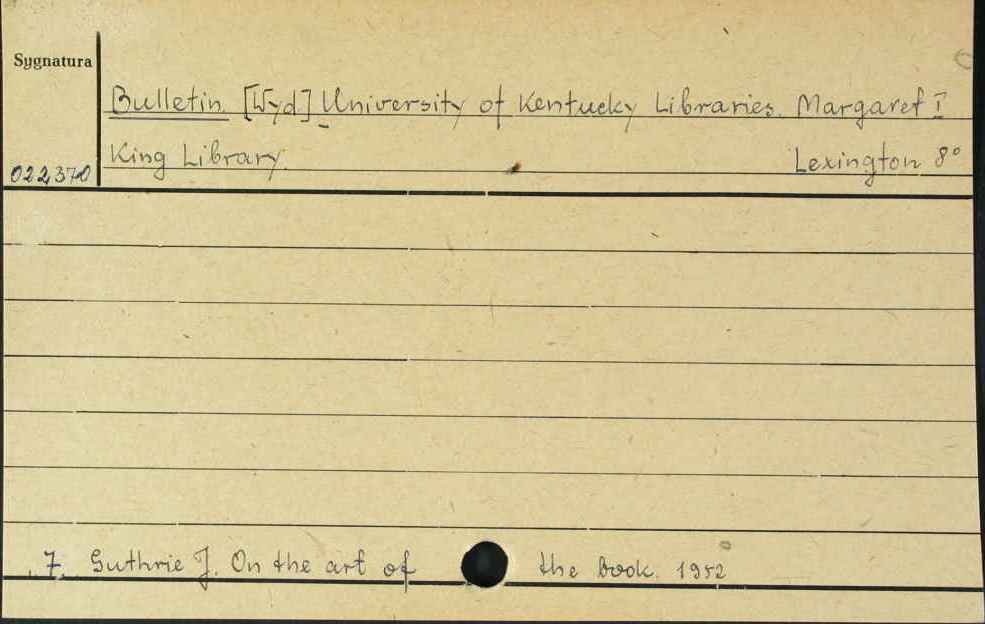 Sygnatura
Bulletin [Wyd] University of Kentucky Libraries. Margaret I
King Library. Lexington 8°
022370
7. Guthrie J. On the art of the book. 1952